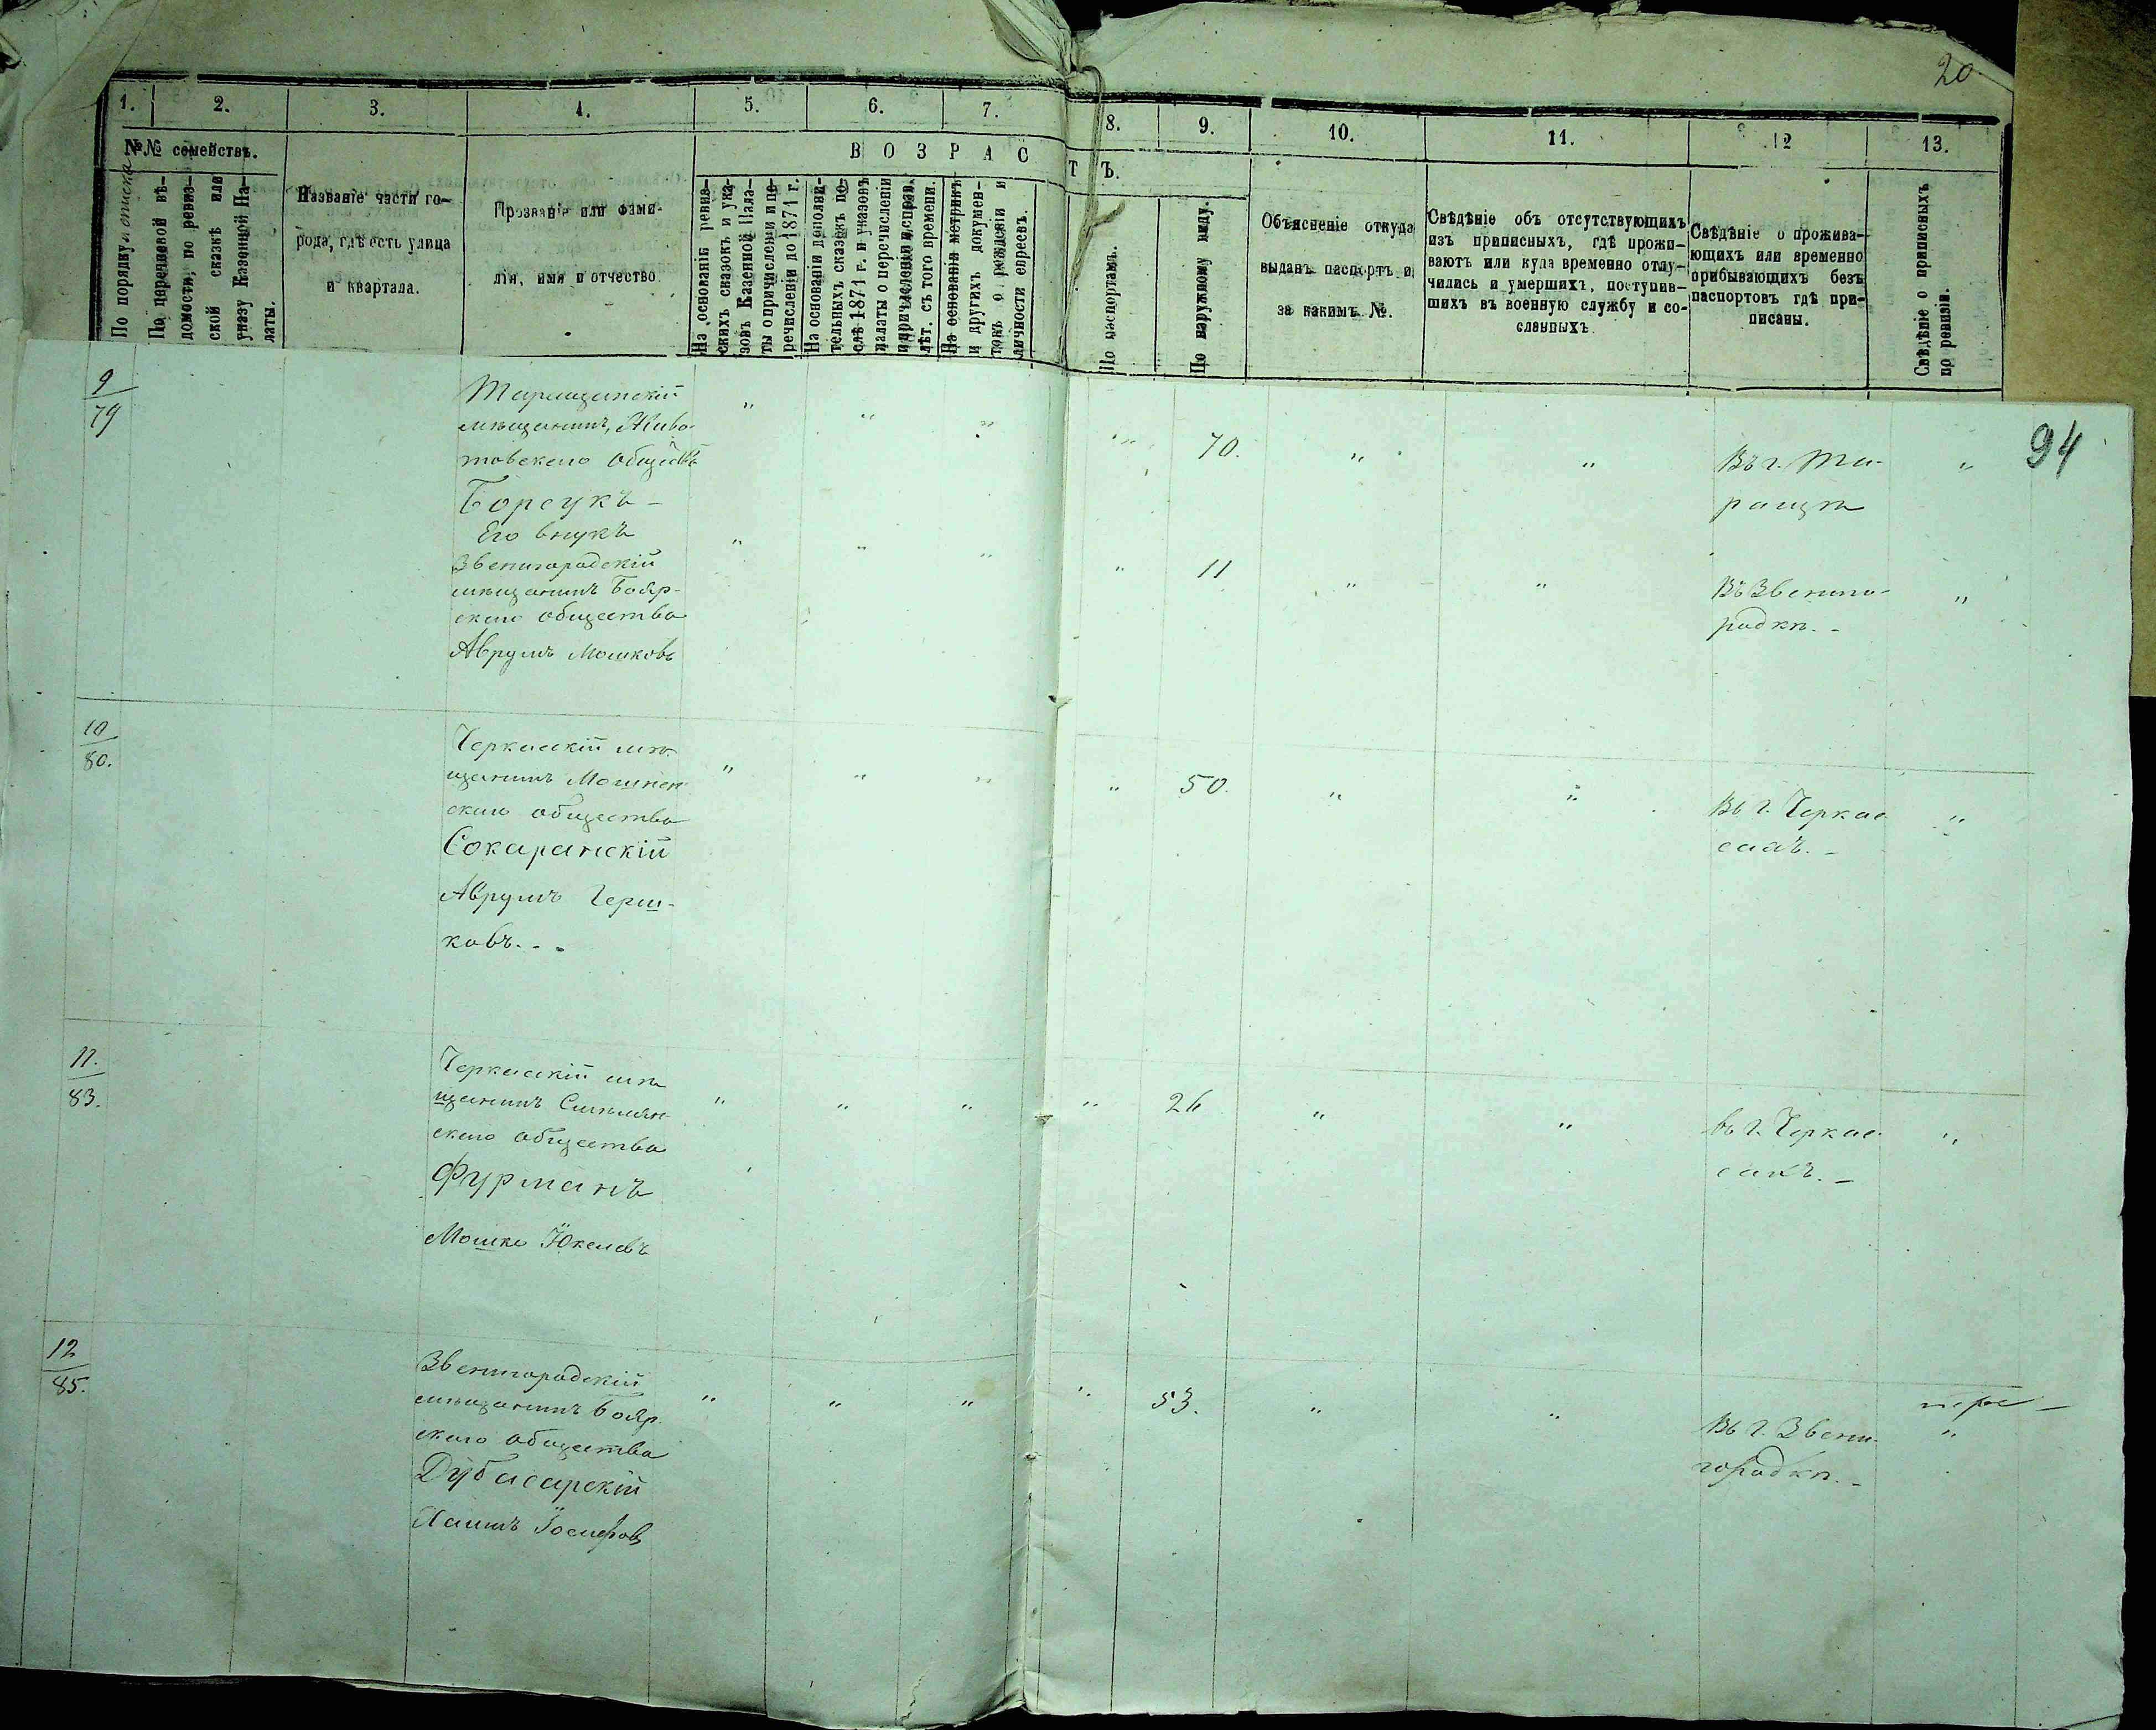 20
1. 2. 3. 4. 5. 6. 7. 8. 9. 10. 11. 12 13.
№№ семействъ.
ВОЗРАСТЪ.
По порядку
По перечневой вѣ-
домости, по ревиз-
ской сказкѣ или
указу Казенной Па-
латы.
Названіе части го-
рода, гдѣ есть улица
и квартала.
Прозваніе или фами-
лія, имя и отчество
На основаніи ревиз-
скихъ сказокъ и ука-
зовъ Казенной Пала-
ты о причисленіи и пе-
речисленіи до 1871 г.
На основаніи дополни-
тельныхъ сказокъ по-
слѣ 1871 г. и указовъ
палаты о перечисленіи
и причисленіи и справ.
лѣт. съ того времени.
На основаніи метрикъ
и другихъ докумен-
товъ о рожденіи и
личности евреевъ.
По паспортамъ.
По наружному виду.
Объясненіе откуда
выданъ паспортъ и
за какимъ №.
Свѣдѣніе объ отсутствующихъ
изъ приписныхъ, гдѣ прожи-
ваютъ или куда временно отлу-
чились и умершихъ, поступив-
шихъ въ военную службу и со-
сланныхъ
Свѣдѣніе о прожива-
ющихъ или временно
прибывающихъ безъ
паспортовъ гдѣ при-
писаны.
Свѣдѣніе о приписныхъ
по ревизіи.
94
9
79
Таращанскій
мѣщанинъ, Живо-
товскаго общества
Борсукъ -
" " " " 70. " "
Въ г. Та-
ращѣ
"
Его внукъ
Звенигородскій
мѣщанинъ Бояр-
скаго общества
Аврумъ Мошковъ
" " " " 11 " "
Въ Звениго-
родкѣ. -
"
10
80.
Черкаскій мѣ-
щанинъ Мошнен
скаго общества
Сокаранскій
Аврумъ Герш-
ковъ. -
" " " " 50. " "
Въ г. Черкас
сахъ. -
"
11.
83.
Черкаскій мѣ
щанинъ Смѣлян
скаго общества
Фурманъ
Мошко Юкелевъ
" " " " 26 " "
въ г. Черкас
сахъ. -
"
12
85.
Звенигородскій
мѣщанинъ Бояр.
скаго общества
Дубасарскій
Хаимъ Іосифовъ
" " " " 53. " "
Въ г. Звени-
городкѣ. -
"